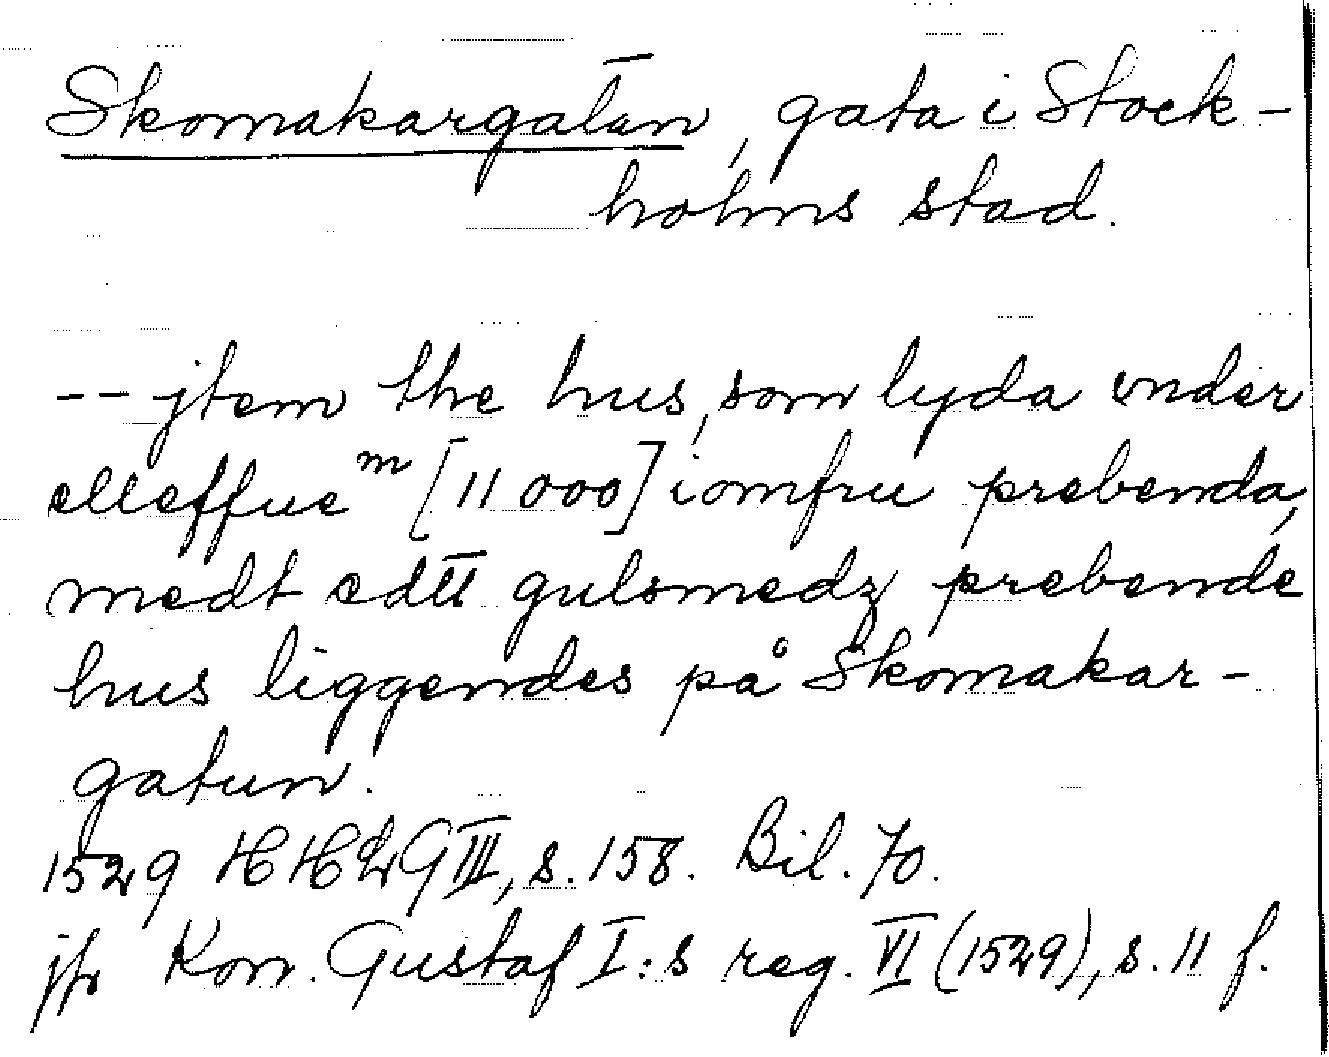 Skomakargatan, gata i Stock-
holms stad.
-- jtem the hus, som lyda vnder
elleffue m [11 000] iomfru prebenda,
medt edtt gulsmedz prebende
hus liggendes på Skomakar-
gatun.
1529 HH2GIII, s. 158. Bil. 70.
jfr Kon. Gustaf I:s reg. VI (1529), s. 11 f.